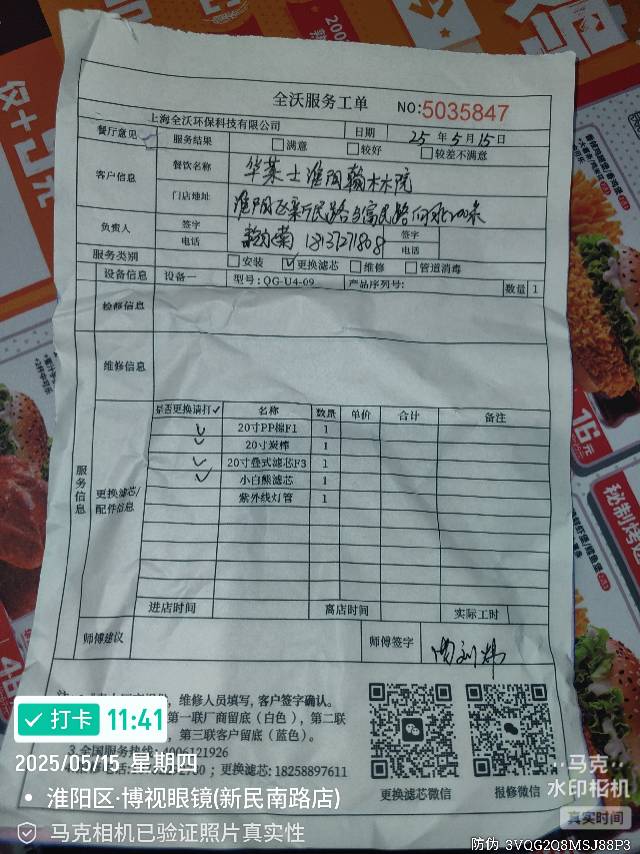 全沃服务工单 NO:5035847
上海全沃环保科技有限公司 日期 25 年 5 月 15 日
餐厅意见 服务结果 满意 较好 较差不满意
客户信息 餐饮名称 华莱士淮阳翰林院
门店地址
负责人 签字 签字
电话 电话
服务类别 安装 ✓更换滤芯 维修 管道消毒
设备信息 设备一 型号:QG-U4-09 产品序列号: 数量 1
检修信息
维修信息
服务信息
更换滤芯/配件信息
是否更换请打✓ 名称 数量 单价 合计 备注
✓ 20寸PP棉F1 1
✓ 20寸炭棒 1
✓ 20寸叠式滤芯F3 1
✓ 小白熊滤芯 1
紫外线灯管 1
进店时间 离店时间 实际工时
师傅建议 师傅签字
维修人员填写,客户签字确认。
第一联厂商留底(白色),第二联
第三联客户留底(蓝色)。
3.全国服务热线:4006121926
更换滤芯:18258897611
更换滤芯微信 报修微信
16元
秘制烤
打卡 11:41
2025/05/15 星期四
淮阳区·博视眼镜(新民南路店)
马克相机已验证照片真实性
马克
水印相机
真实时间
防伪 3VQG2Q8MSJ88P3